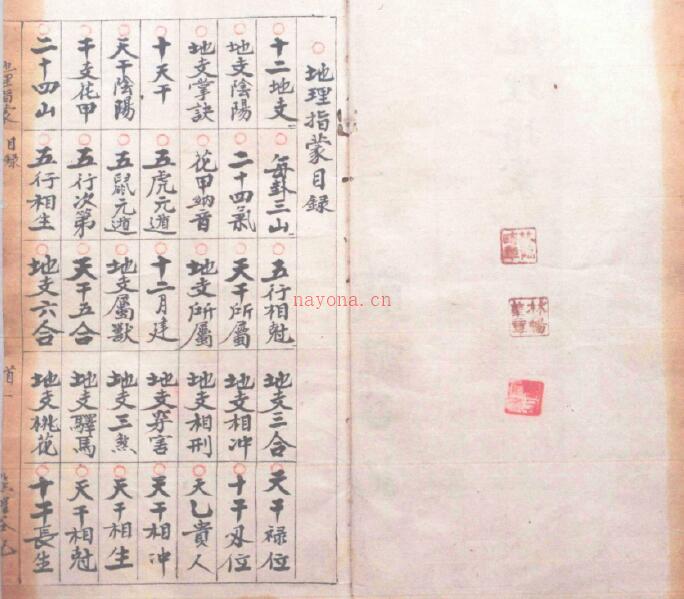 地理指蒙目録
十二地支
地支陰陽
地支掌訣
十天干
天干陰陽
干支花甲
二十四山
每卦三山
二十四氣
花甲納音
五虎元遁
五鼠元遁
五行次第
五行相生
五行相尅
天干所屬
地支所屬
十二月建
地支屬獸
天干五合
地支六合
地支三合
地支相冲
地支相刑
地支穿害
地支三煞
地支驛馬
地支桃花
天干禄位
十干刃位
天乙貴人
天干相冲
天干相生
天干相尅
十干長生
地理指蒙 目録 首一
nayona.cn